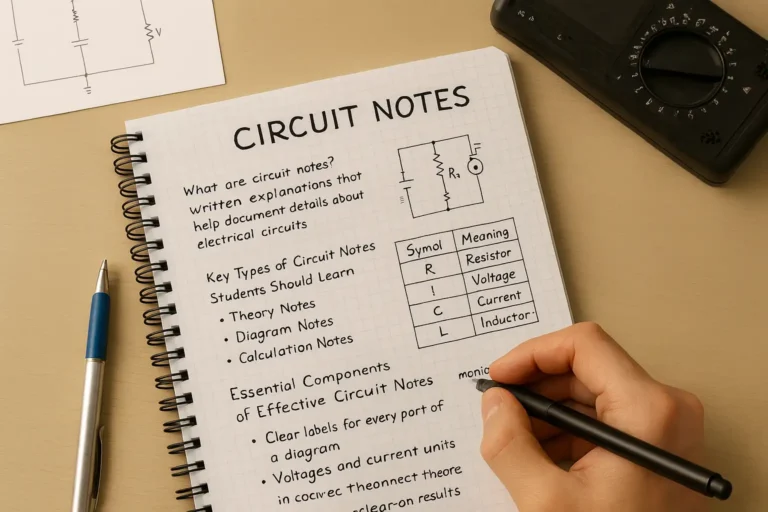 V
CIRCUIT NOTES
What are circuit notes?
Written explanations thot
help document details about
electrical circuits
R₂
Symol Meaning
R Resistor
I Voltage
C Current
L Inductor
Key Types of Circuit Notes
Students Should Learn
• Theory Notes
• Diagram Notes
• Calculation Notes
Essential Components
of Effective Circuit Notes
• Clear labels for every part of
a diagram
• Voltages and current units
in cocivec theonnect theore
clear-on results
monic